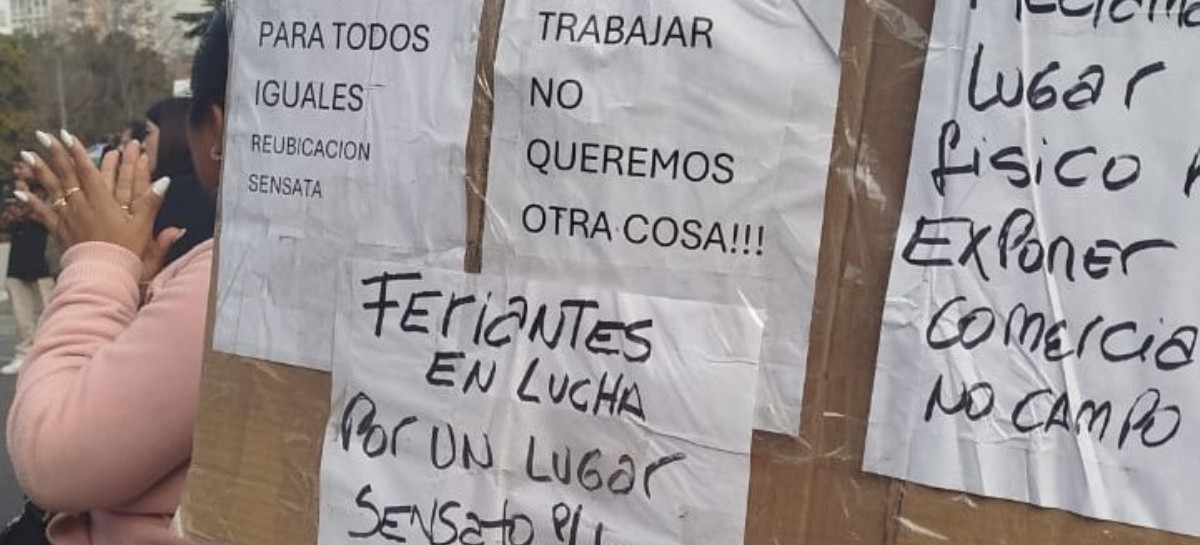 PARA TODOS
IGUALES
REUBICACION
SENSATA
TRABAJAR
NO
QUEREMOS
OTRA COSA!!!
FERIANTES
EN LUCHA
POR UN LUGAR
SENSATO P/
LUGAR
FISICO
EXPONER
COMERCIA
NO CAMPO